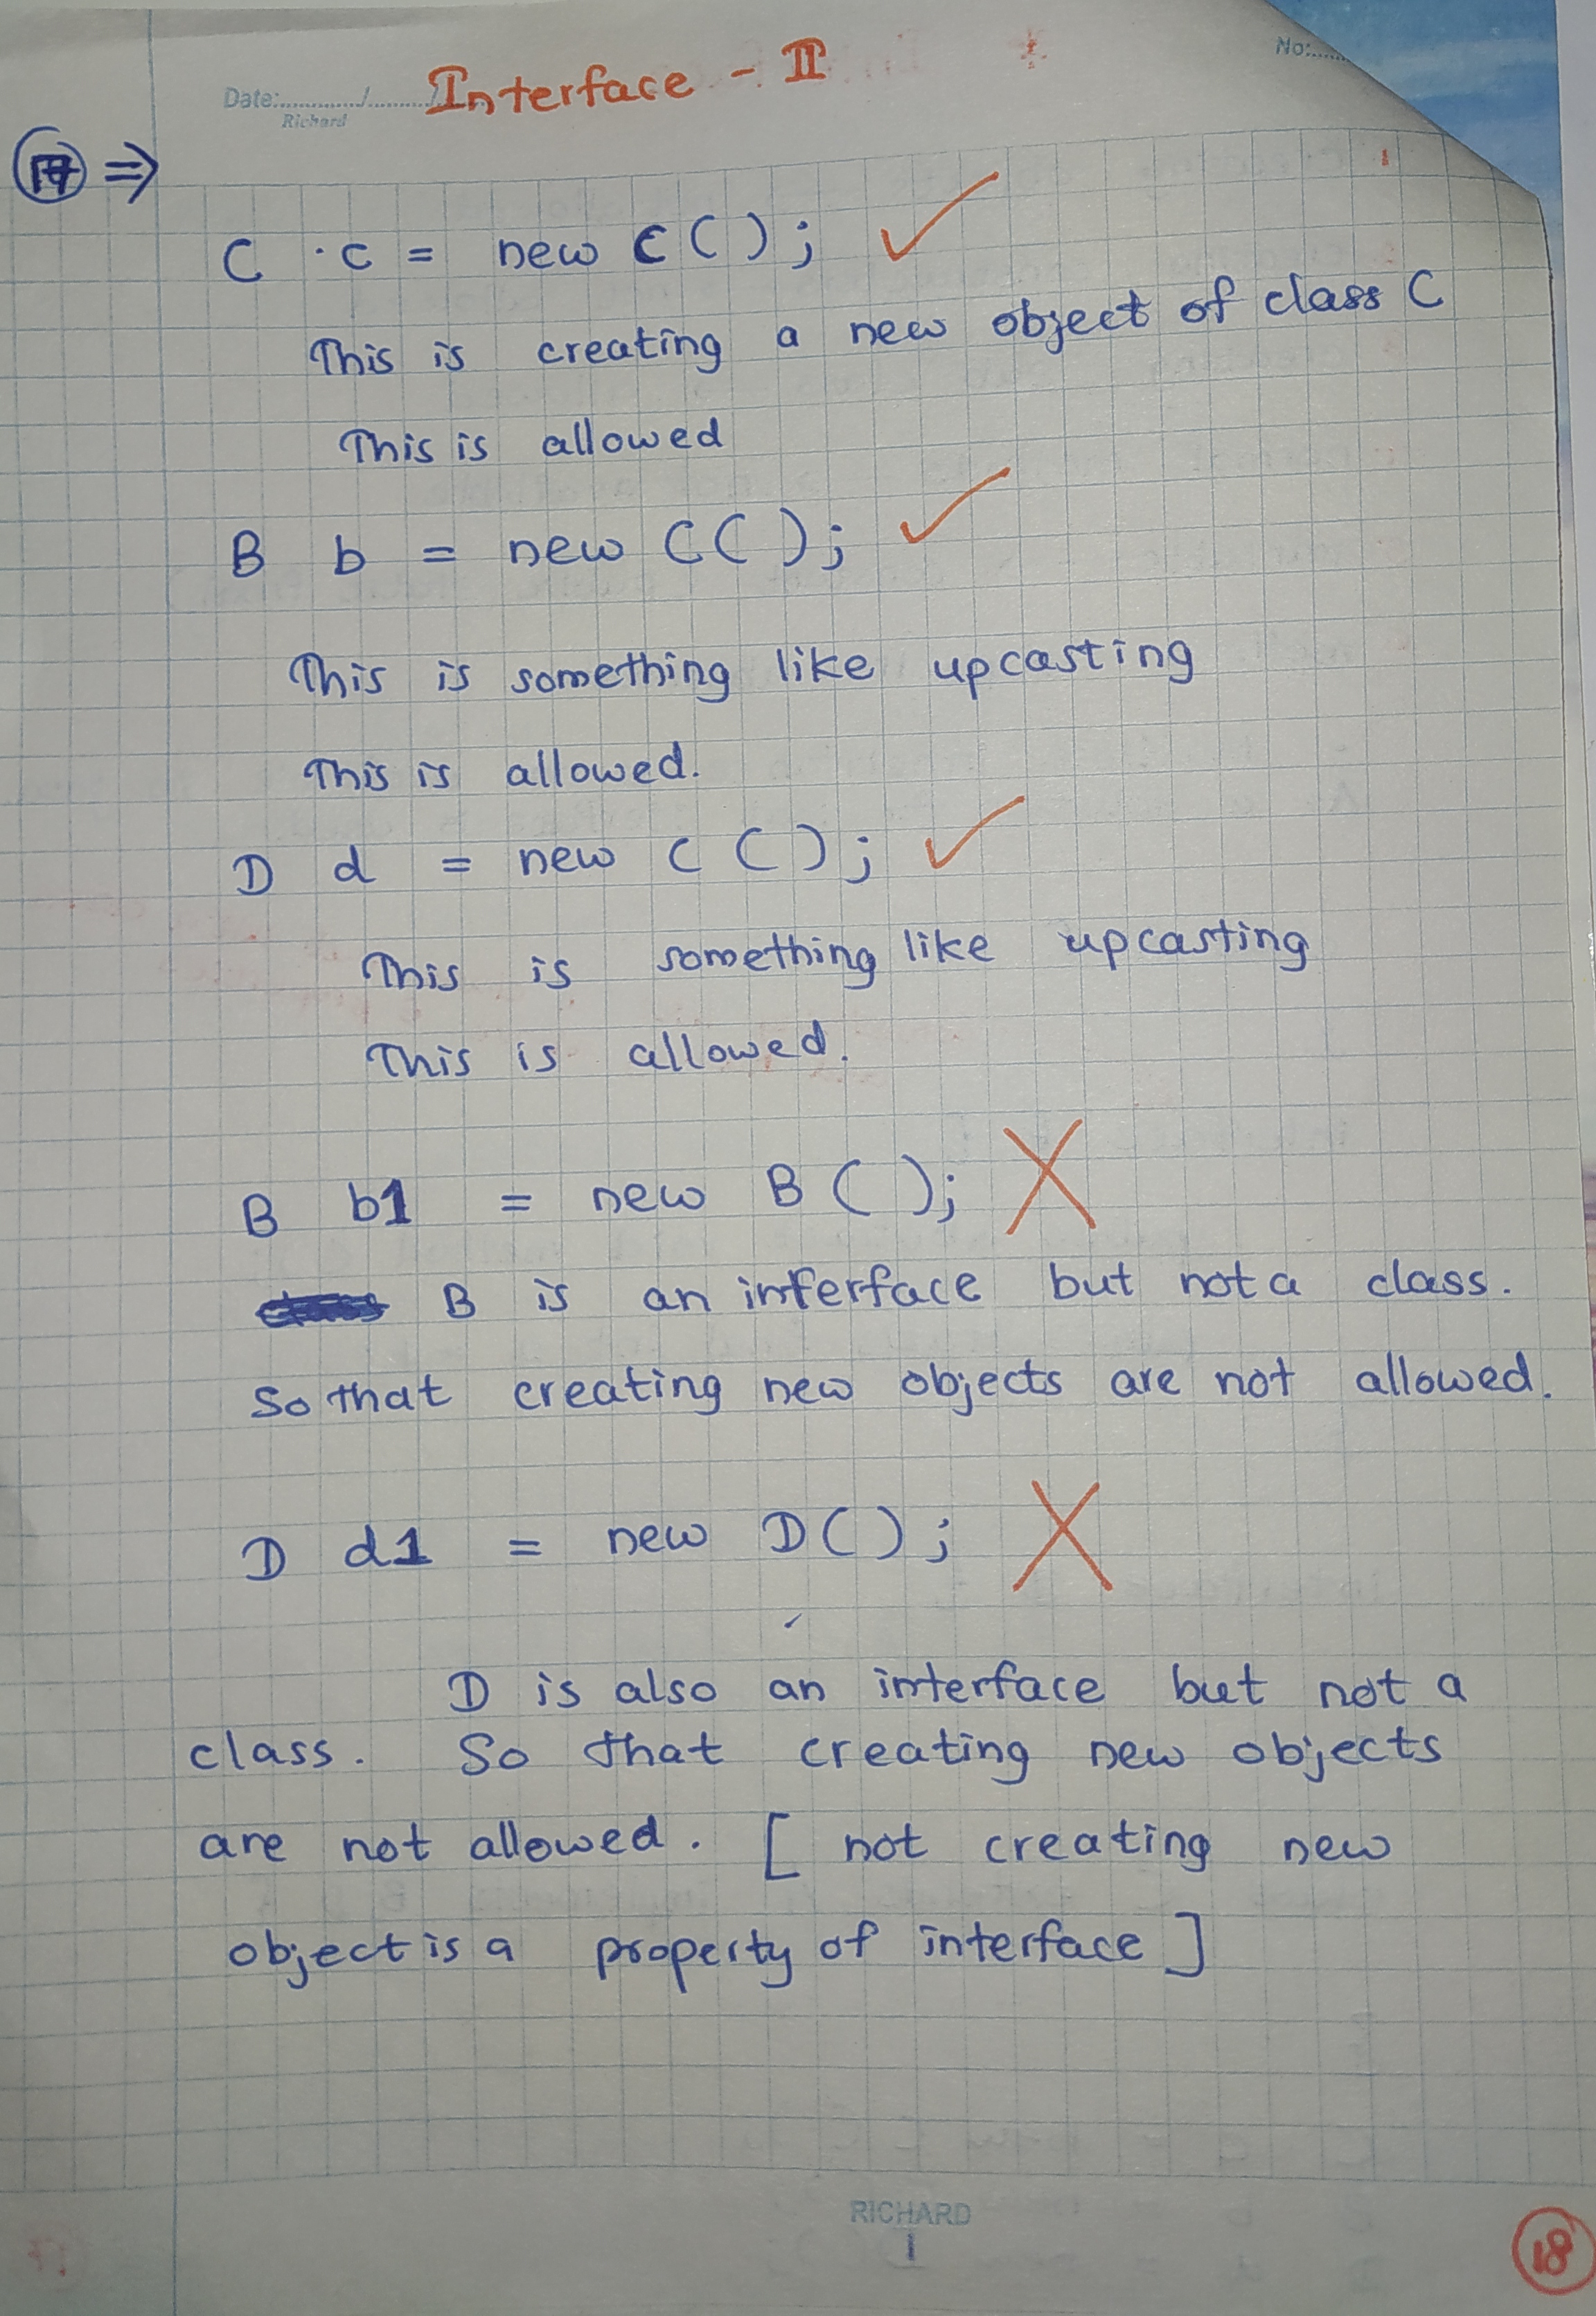 Interface - II
No:......
Date:............/........../
Richard
17 ⇒
C c = new C(); ✓
This is creating a new object of class C
This is allowed
B b = new C(); ✓
This is something like upcasting
This is allowed.
D d = new C(); ✓
This is something like upcasting
This is allowed.
B b1 = new B(); X
B is an interface but not a class.
So that creating new objects are not allowed.
D d1 = new D(); X
D is also an interface but not a
class. So that creating new objects
are not allowed. [ not creating new
object is a property of interface ]
RICHARD
1
18